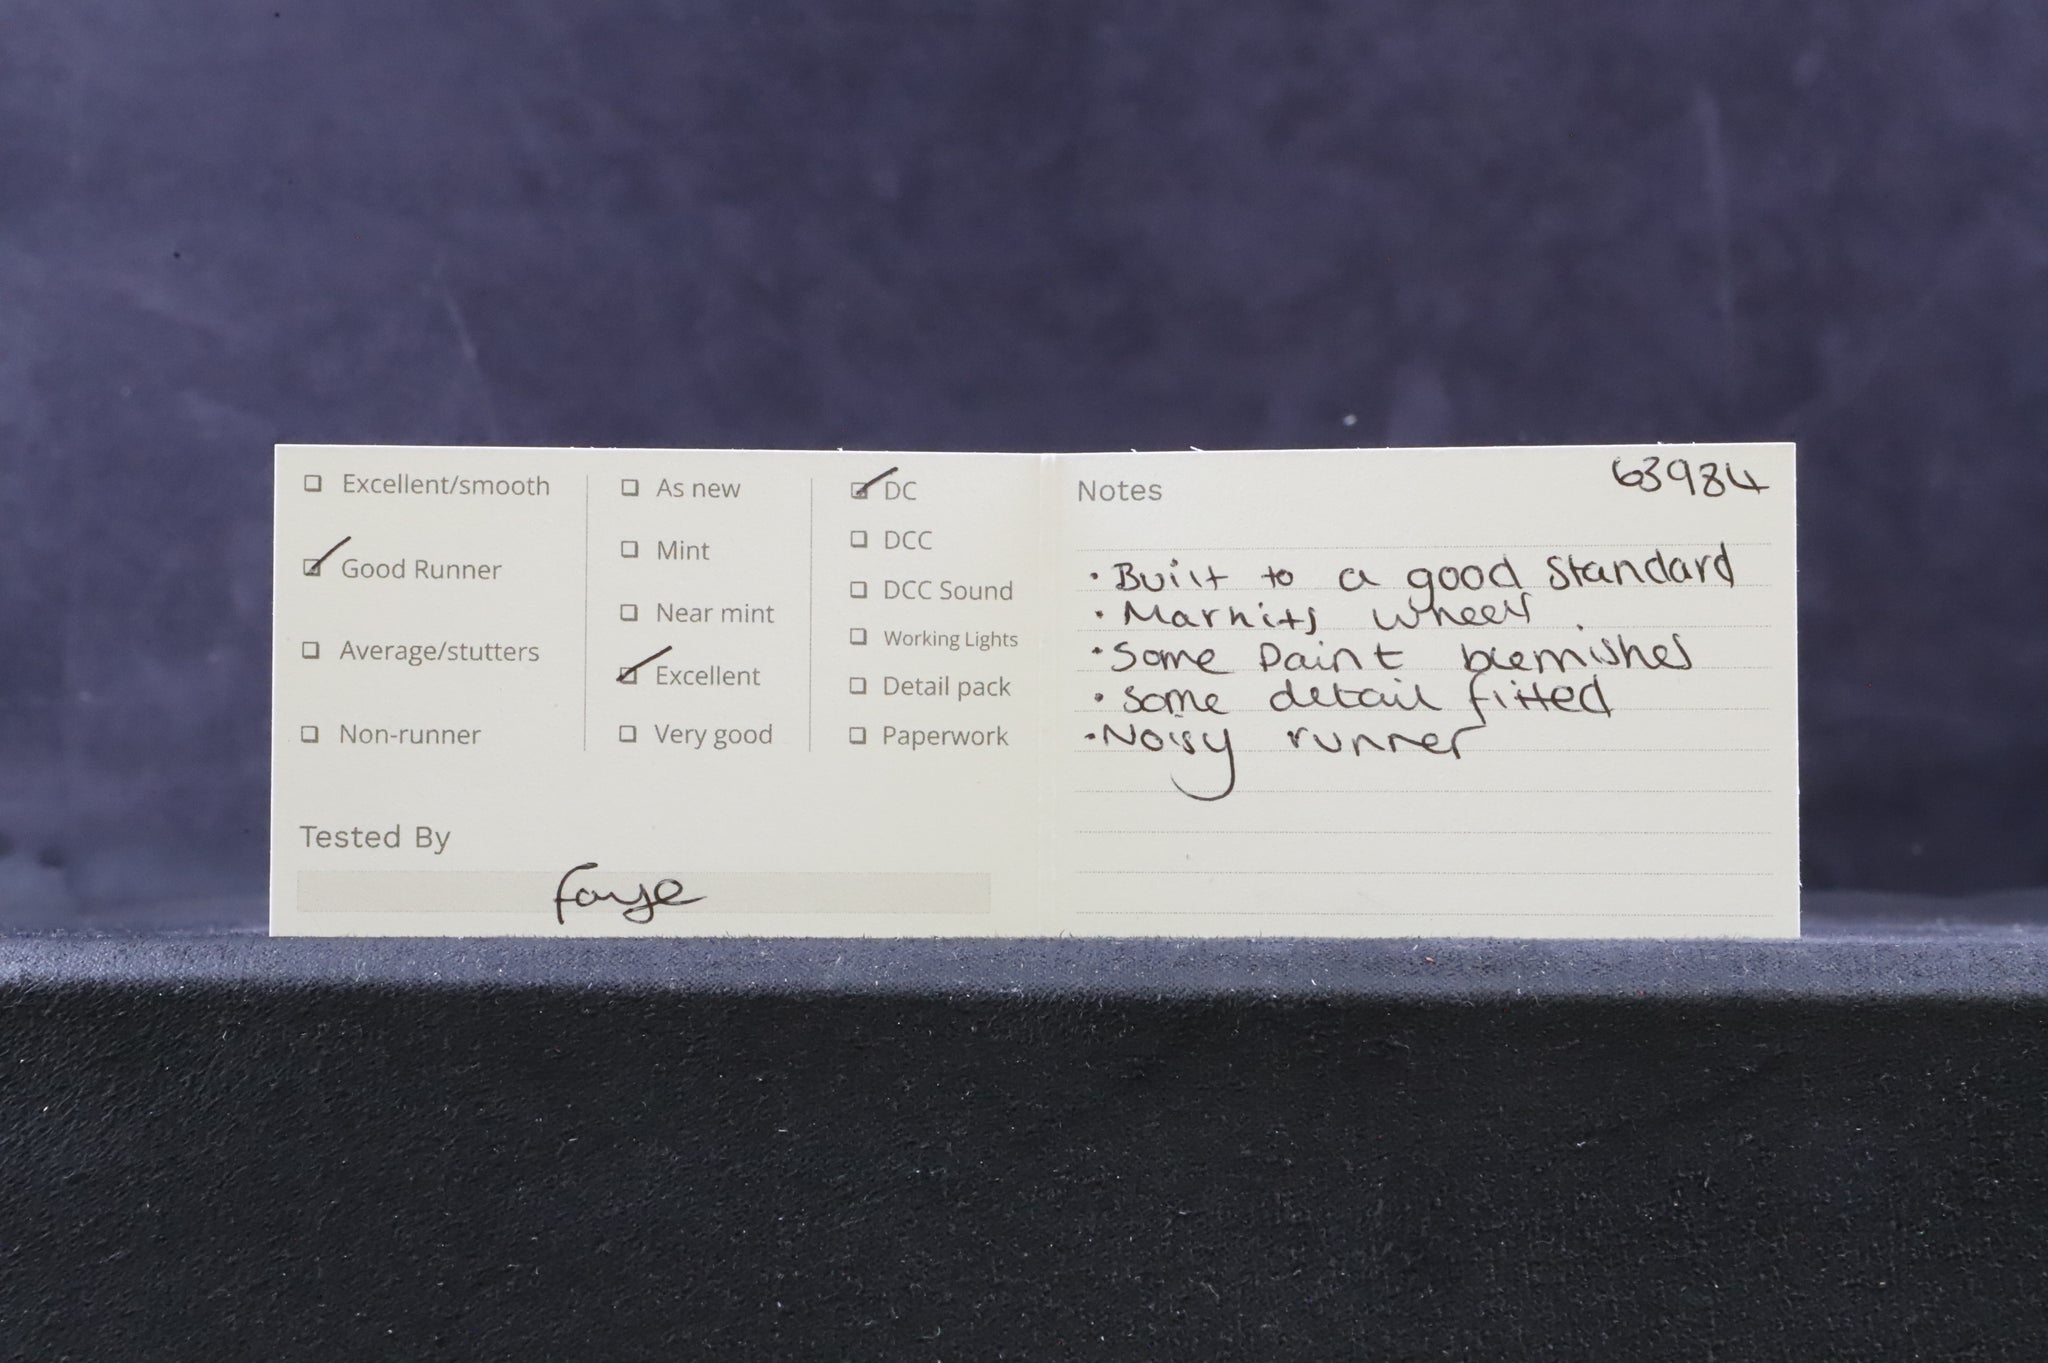 Excellent/smooth
Good Runner
Average/stutters
Non-runner
As new
Mint
Near mint
Excellent
Very good
DC
DCC
DCC Sound
Working Lights
Detail pack
Paperwork
Tested By
Faye
Notes
63984
• Built to a good Standard
• Markits wheels
• Some Paint blemishes
• Some detail fitted
• Noisy runner